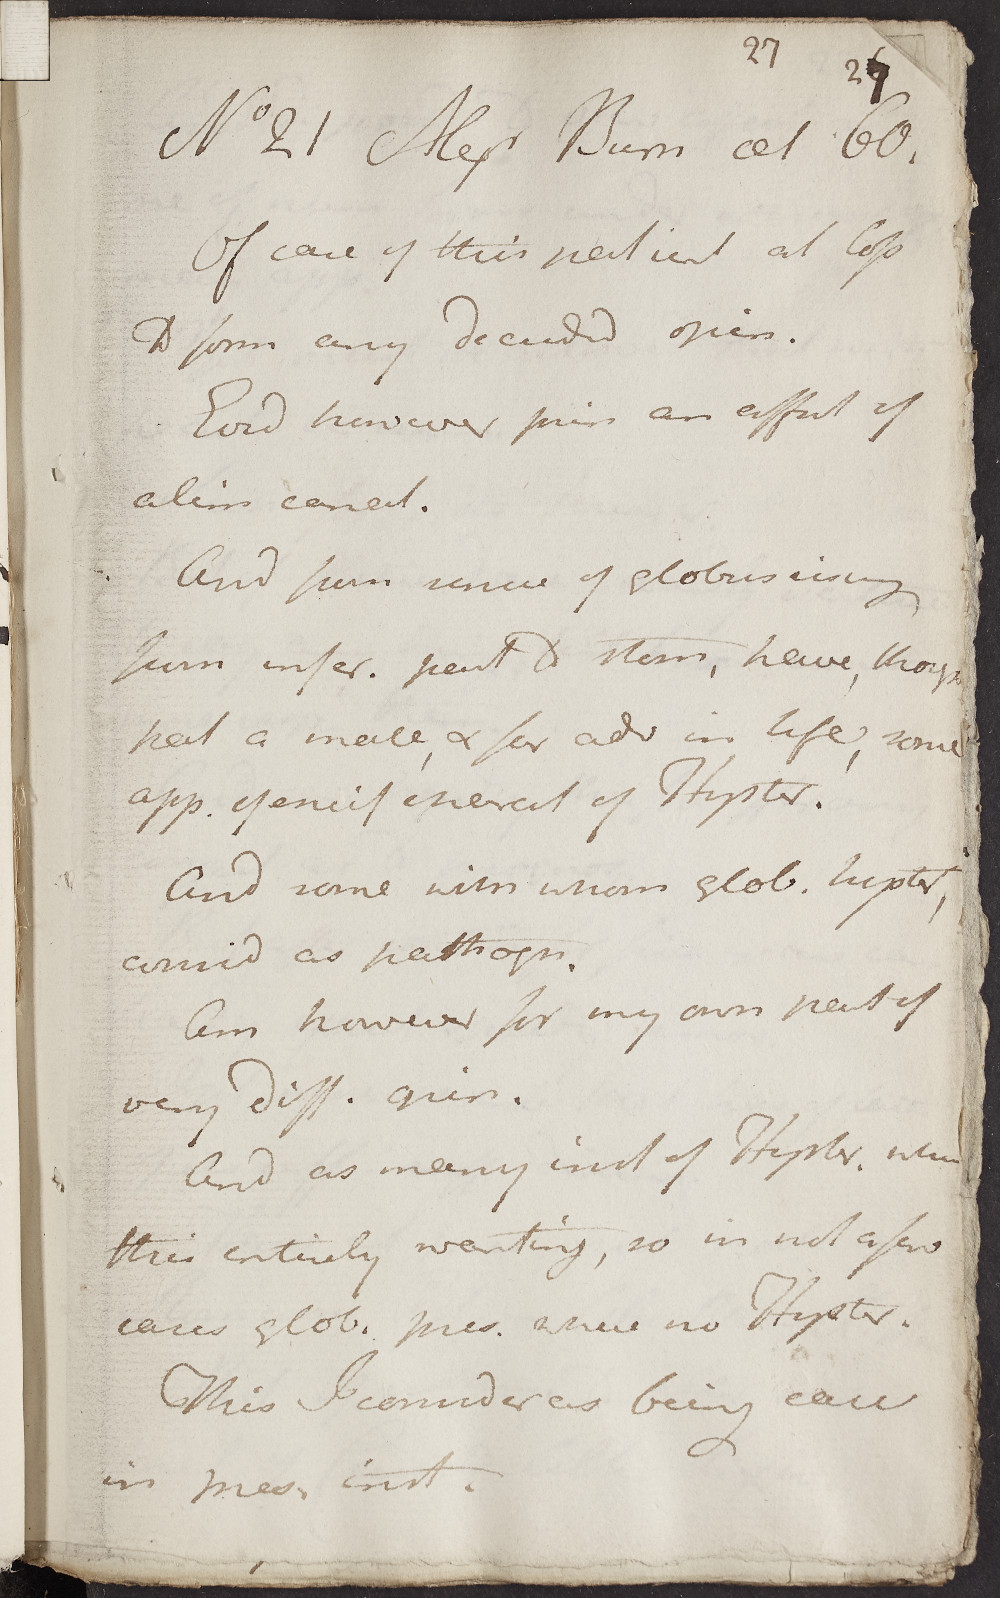 27
27
No 21 Alexr Burn æt 60.
Of case of this patient at loss
to form any decided opin.
Evid however prin an affect of
alim canal.
And from sense of globus rising
from infer. part to stom, have, though
pat a male, & far adv in life, some
app. of
of Hyster.
And some with whom glob. hyster,
consid as pathogn.
Am however for my own part of
very diff. opin.
And as many inst of Hyster. when
this entirely wanting, so in not a few
cases glob. pres. where no Hyster.
This I consider as being case
in pres. inst.